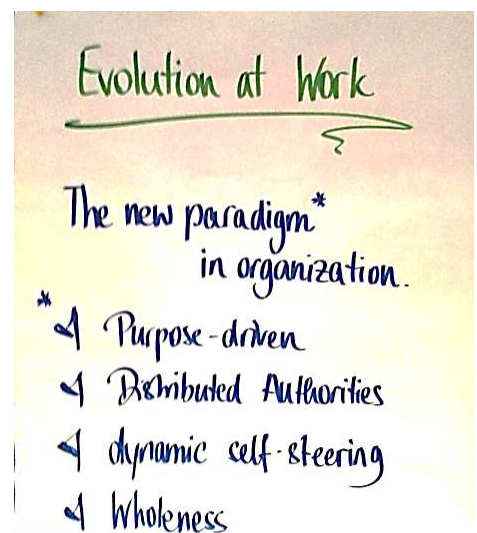 Evolution at Work
The new paradigm*
in organization.
* Purpose-driven
Distributed Authorities
dynamic self-steering
Wholeness